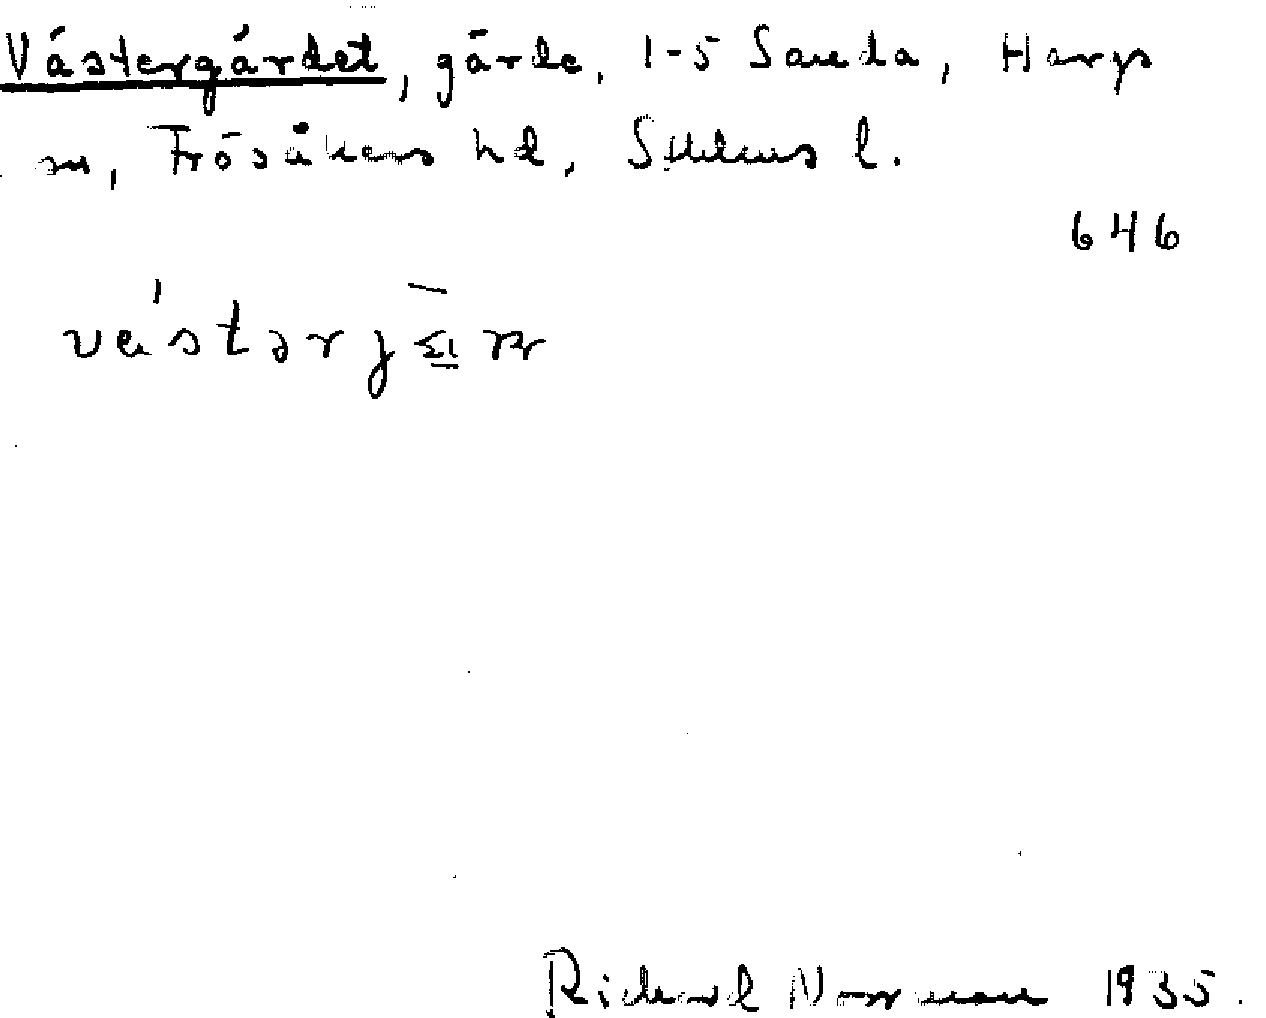 Västergärdet, gärde, 1-5 Sanda, Hargs
sn, Frösåkers hd, Sthlms l.
646
Richard Norrman 1935.